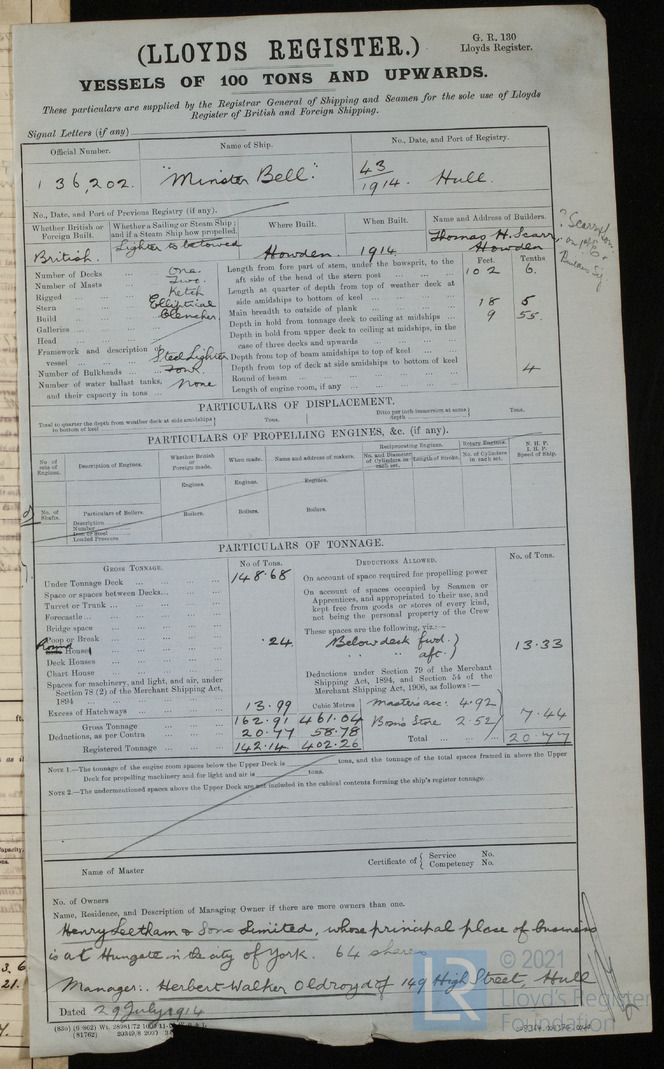 (LLOYDS REGISTER.)
G. R. 130
Lloyds Register.
VESSELS OF 100 TONS AND UPWARDS.
These particulars are supplied by the Registrar General of Shipping and Seamen for the sole use of Lloyds
Register of British and Foreign Shipping.
Signal Letters (if any)
Official Number.
Name of Ship.
No., Date, and Port of Registry.
136,202.
"Minster Bell".
43
1914. Hull.
No., Date, and Port of Previous Registry (if any).
Whether British or Foreign Built.
Whether a Sailing or Steam Ship; and if a Steam Ship how propelled.
Where Built.
When Built.
Name and Address of Builders.
British.
Lighter to be towed
Howden.
1914
Thomas H. Scarr,
Howden
Number of Decks ... One.
Number of Masts ... Two.
Rigged ... Ketch
Stern ... Elliptical
Build ... Clencher.
Galleries
Head
Framework and description of vessel ... Steel Lighter
Number of Bulkheads ... Four.
Number of water ballast tanks, and their capacity in tons ... None
Feet. Tenths
Length from fore part of stem, under the bowsprit, to the aft side of the head of the stern post ... 102 6.
Length at quarter of depth from top of weather deck at side amidships to bottom of keel
Main breadth to outside of plank ... 18 5
Depth in hold from tonnage deck to ceiling at midships ... 9 55.
Depth in hold from upper deck to ceiling at midships, in the case of three decks and upwards
Depth from top of beam amidships to top of keel
Depth from top of deck at side amidships to bottom of keel
Round of beam ... 4
Length of engine room, if any
PARTICULARS OF DISPLACEMENT.
Total to quarter the depth from weather deck at side amidships to bottom of keel
Tons.
Ditto per inch immersion at same depth
Tons.
PARTICULARS OF PROPELLING ENGINES, &c. (if any).
No. of sets of Engines.
Description of Engines.
Whether British or Foreign made.
When made.
Name and address of makers.
Reciprocating Engines.
No. and Diameter of Cylinders in each set.
Length of Stroke.
Rotary Engines.
No. of Cylinders in each set.
N. H. P.
I. H. P.
Speed of Ship.
Engines. Engines. Engines.
No. of Shafts.
Particulars of Boilers.
Boilers. Boilers. Boilers.
Description
Number
Iron or Steel
Loaded Pressure
PARTICULARS OF TONNAGE.
GROSS TONNAGE.
No of Tons.
DEDUCTIONS ALLOWED.
No. of Tons.
Under Tonnage Deck ... 148.68
Space or spaces between Decks
Turret or Trunk
Forecastle
Bridge space
Poop or Break
Round House ... .24
Deck Houses
Chart House
Spaces for machinery, and light, and air, under
Section 78 (2) of the Merchant Shipping Act,
1894
Excess of Hatchways ... 13.99
Cubic Metres
Gross Tonnage ... 162.91 461.04
Deductions, as per Contra ... 20.77 58.78
Registered Tonnage ... 142.14 402.26
On account of space required for propelling power
On account of spaces occupied by Seamen or
Apprentices, and appropriated to their use, and
kept free from goods or stores of every kind,
not being the personal property of the Crew
These spaces are the following, viz.:—
Below deck fwd.
" " aft. 13.33
Deductions under Section 79 of the Merchant
Shipping Act, 1894, and Section 54 of the
Merchant Shipping Act, 1906, as follows:—
Masters acc. 4.92
Bosn's Store 2.52 7.44
Total ... 20.77
NOTE 1.—The tonnage of the engine room spaces below the Upper Deck is tons, and the tonnage of the total spaces framed in above the Upper
Deck for propelling machinery and for light and air is tons.
NOTE 2.—The undermentioned spaces above the Upper Deck are not included in the cubical contents forming the ship's register tonnage.
Name of Master
Certificate of { Service No.
Competency No.
No. of Owners
Name, Residence, and Description of Managing Owner if there are more owners than one.
Henry Leetham & Sons Limited, whose principal place of business
is at Hungate in the city of York. 64 shares
Manager:. Herbert Walker Oldroyd of 149 High Street, Hull
Dated 29 July 1914
© 2021
Lloyd's Register
Foundation
LR
(81762)